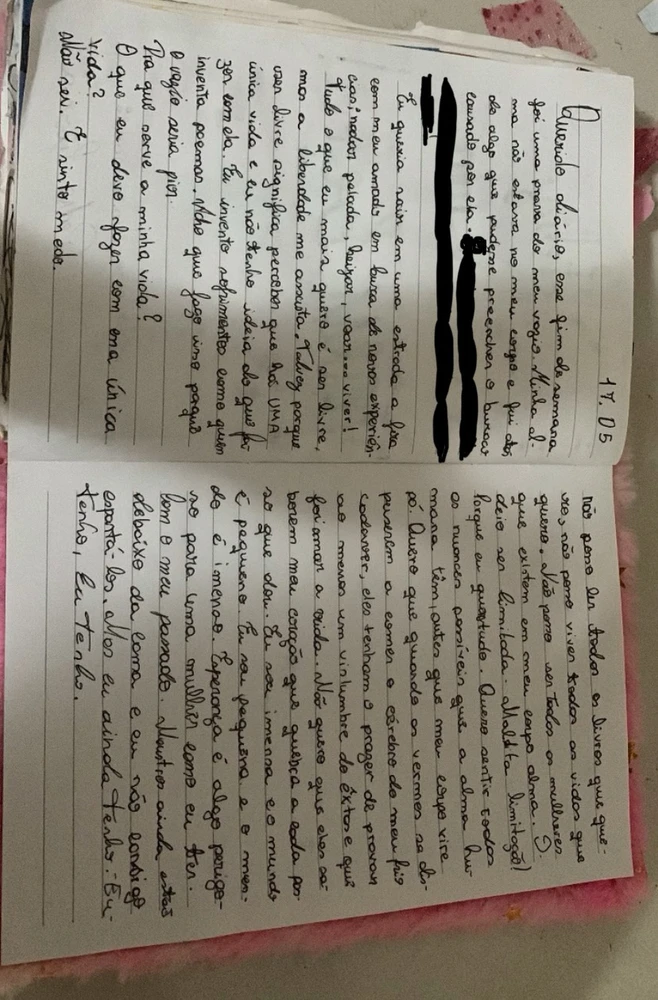 17.05
Querido diário, esse fim de semana
foi uma prova do meu vazio. Minha al-
ma não estava no meu corpo e fui atrás
de algo que pudesse preencher o buraco
causado por ela.
Eu queria sair em uma estrada a fora
com meu amado em busca de novas experiên-
cias; nadar pelada, beijar, voar... viver!
Tudo o que eu mais quero é ser livre,
mas a liberdade me assusta. Talvez porque
ser livre significa perceber que há UMA
única vida e eu não tenho ideia do que fa-
zer com ela. Eu invento sofrimentos como quem
inventa poemas. Acho que faço isso porque
o vazio seria pior.
Pra que serve a minha vida?
O que eu devo fazer com essa única
vida?
Não sei. E sinto medo.
não posso ler todos os livros que que-
ro, não posso viver todas as vidas que
quero. Não posso ser todas as mulheres
que existem em meu corpo alma.
deio ser limitada. Maldita limitação!
Porque eu quero tudo. Quero sentir todas
as nuances possíveis que a alma hu-
mana têm, antes que meu corpo vire
pó. Quero que quando os vermes se dis-
puserem a comer o cérebro do meu frio
cadáver, eles tenham o prazer de provar
ao menos um vislumbre do êxtase que
foi amar a vida. Não quero que eles sa-
boreem meu coração que quebra a cada pas-
so que dou. Eu sou imensa e o mundo
é pequeno. Eu sou pequena e o mun-
do é imenso. Esperança é algo perigo-
so para uma mulher como eu ter.
Com o meu passado. Monstros ainda estão
debaixo da cama e eu não consigo
espantá-los. Mas eu ainda tenho. Eu-
tenho, Eu tenho.